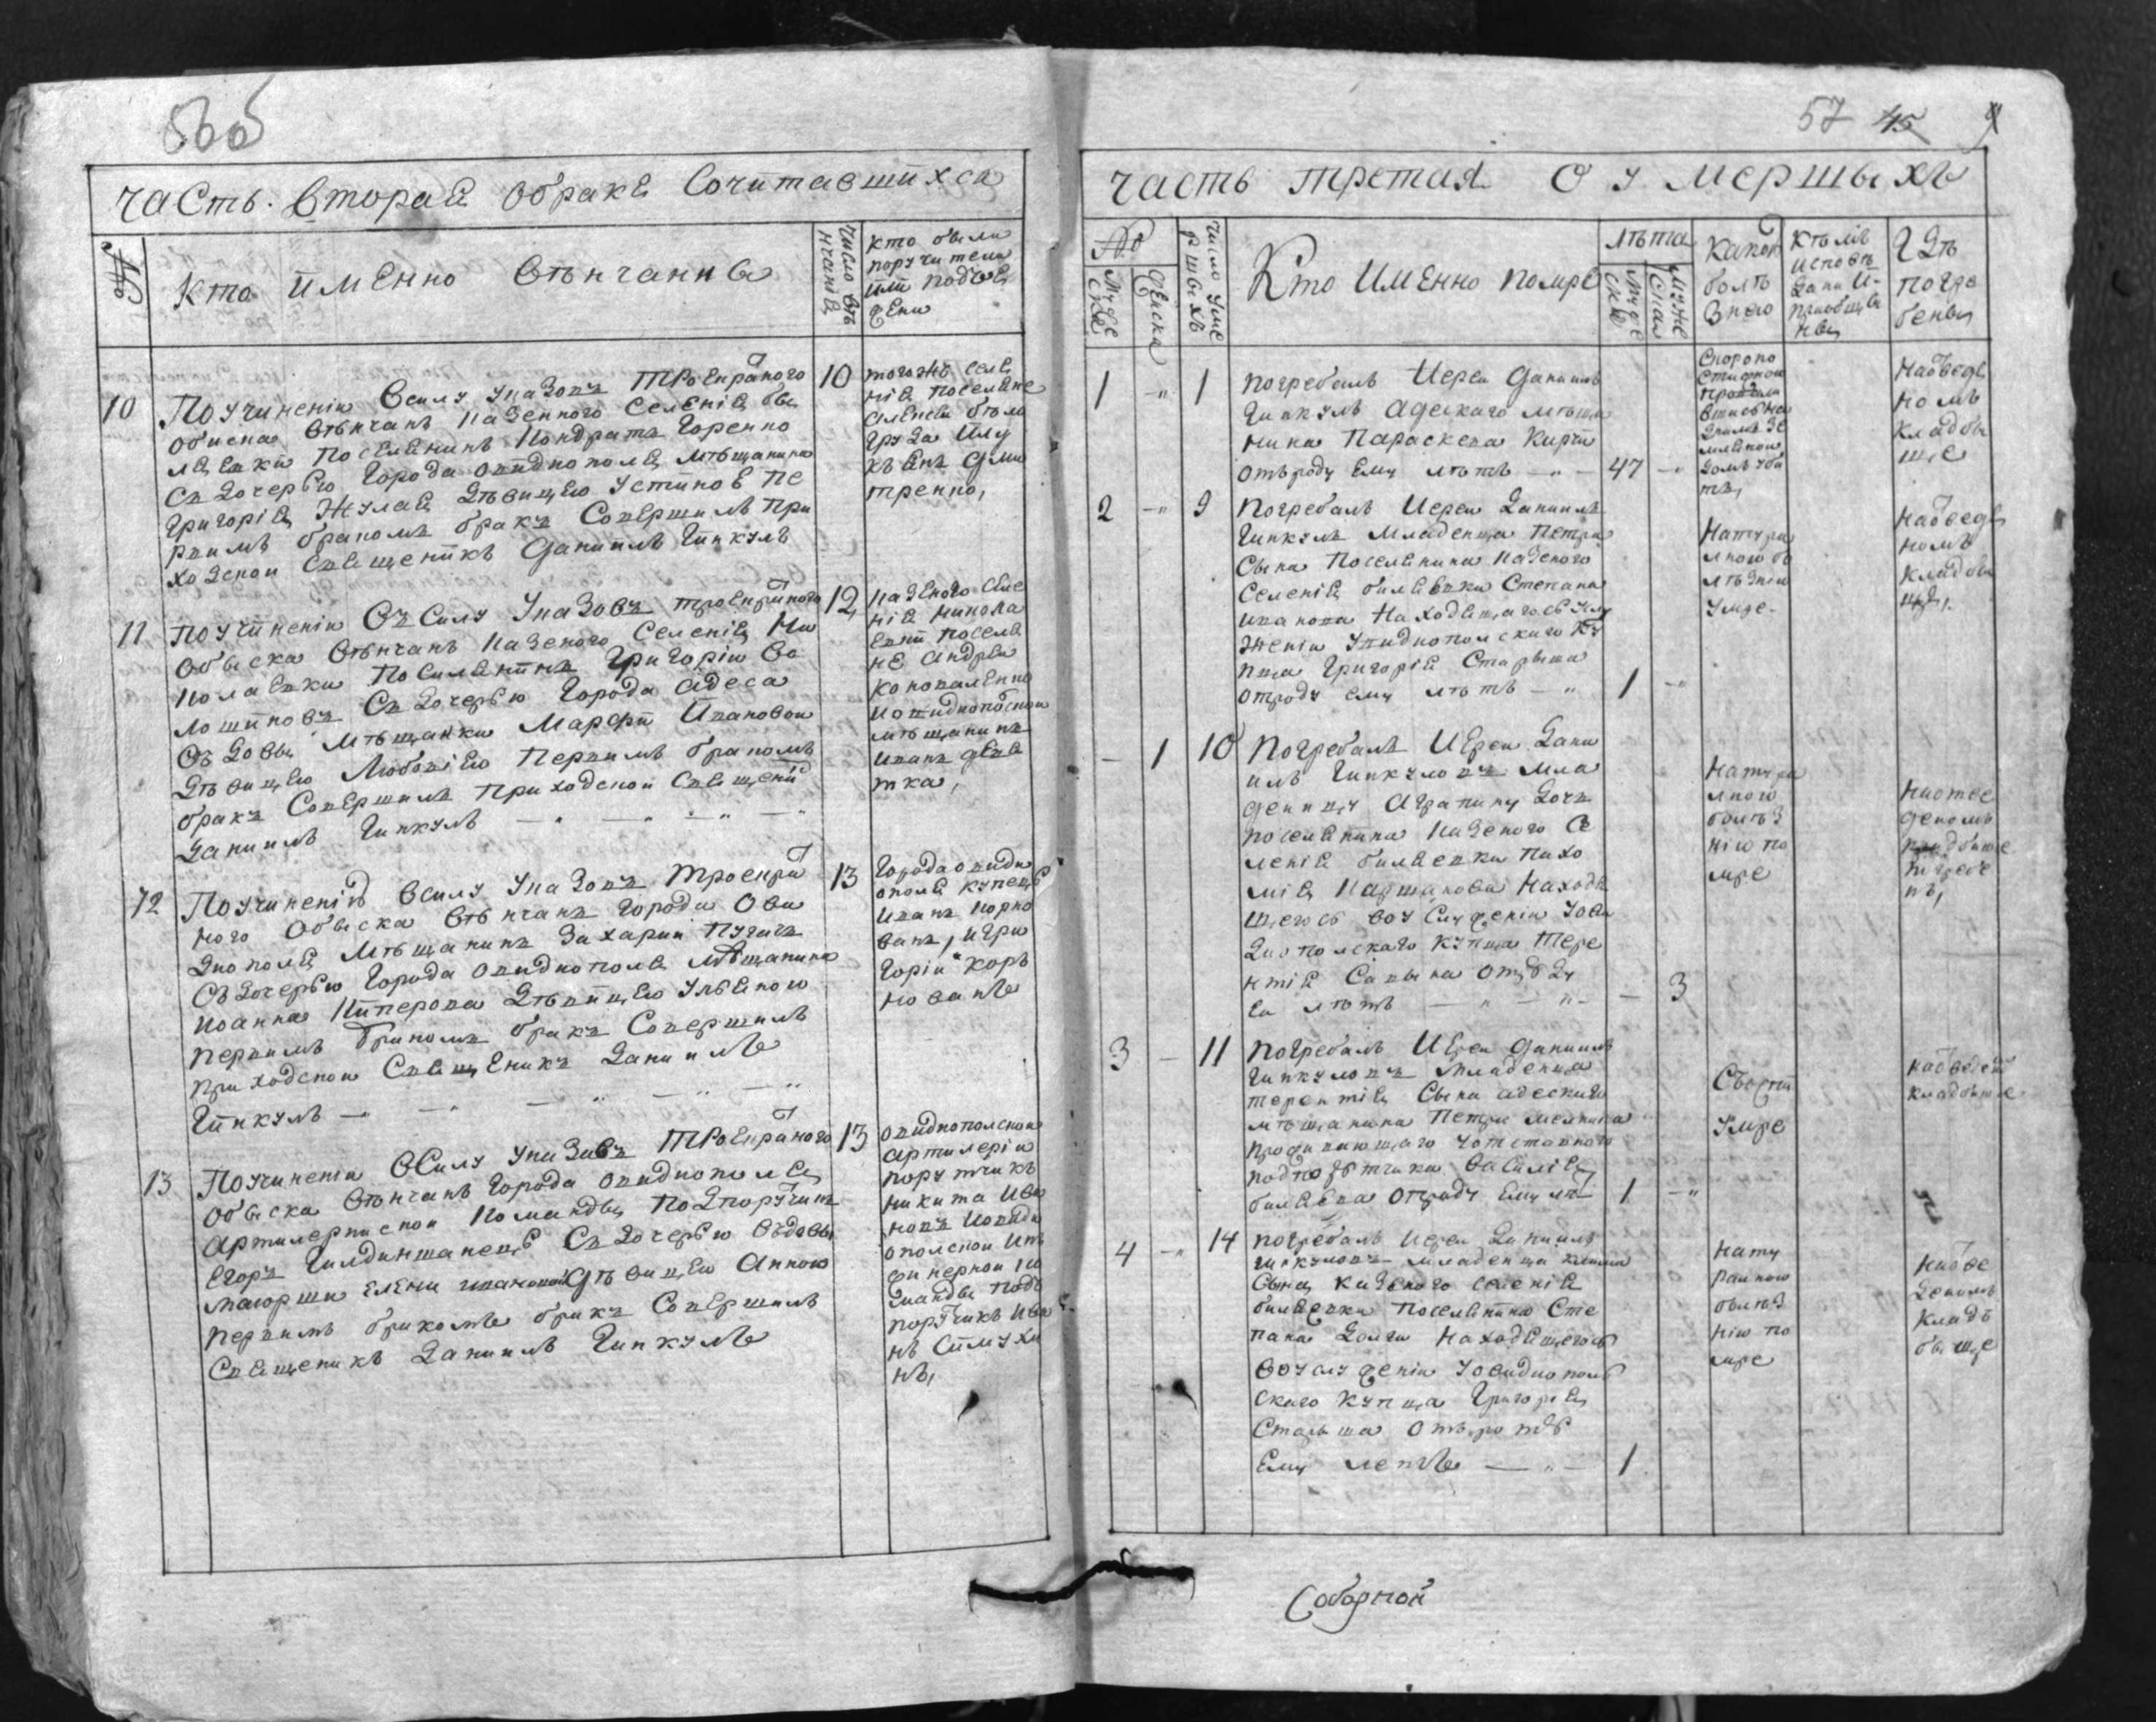 56об
часть. вторая обракѣ Сочитавшихся
№
кто именно вѣнчанны
число вѣ
нчанія
кто были
поручители
или подъез
жени
10
По учиненіи Всилу указовъ троекратного
обыска вѣнчанъ казенного селенія бы
ляевки поселянинъ Кондратъ Горенко
съ дочерью города овидиополя мѣщанина
Григорія Жулая дѣвицею устиною пе
рвимъ бракомъ бракъ совершилъ при
ходской священикъ Даниилъ Гинкулъ
10
тогожъ селе
нія поселяне
Дми
тренко,
11
По учиненіи Въ Силу указовъ троекратного
обыска вѣнчанъ казеного селенія Ни
колаевки Поселянинъ Григорій Во
лошиновъ съ дочерью города адеса
въдовы мѣщанки Марфи Ивановои
дѣвицею Любовію Первимъ бракомъ
бракъ Совершилъ приходской священи
Даниилъ Гинкулъ
12
казеного селе
нія никола
евки поселя
не андрей
коноваленко
иовидиополской
мѣщанинъ
иванъ деве
тка,
12
По учиненіи Всилу указовъ троекра
ного обыска вѣнчанъ города Ови
диополя мѣщанинъ Захарий Пугачъ
съ дочерью города овидиополя мѣщанина
иоанна Киперова дѣвицею Ульяною
первимъ бракомъ бракъ Совершилъ
приходской Священикъ Даниилъ
Гинкулъ
13
города овиди
ополя купецъ
иванъ корно
ванъ, игри
горій корь
нованъ
13
По учиненіи Всилу указовъ троекраного
обыска вѣнчанъ города овидиополя
артилерииской команды подпоручикъ
Егоръ Гилдиншанецъ съ дочерью въдовы
маиорши елены ивановой дѣвицею Анною
первимъ бракомъ бракъ Совершилъ
Священикъ Даниилъ Гинкулъ
13
овидиополской
артилеріи
порутчикъ
никита ива
новъ иовиди
ополской ин
финерной ко
манды подъ
порутчикъ ива
нъ Симухи
нъ,
57 45
часть третая О умершыхъ
№
муже
ска
женска
число уме
ршыхъ
Кто именно помре
лѣта
муже
ска
какой
болѣ
знею
кѣмъ
исповѣ
дани и
приобще
ны
Гдѣ
погре
бены
1 1
погребалъ Иереи Даниилъ
Гинкулъ адескаго мѣща
нина Параскева Кирти
отъроду ему лѣтъ 47
Скоропо
стижной
набоведе
номъ
кладбы
ще
2 9
Погребалъ Иереи Даниилъ
Гинкулъ младенца Петра
сына поселянина казеного
селенія биляевки Степана
иванова находящагось услу
женіи уовидиополского ку
пца Григорія Старыша
отроду ему лѣтъ 1
Натура
лною бо
лѣзнею
умре.
Набоведе
номъ
кладбы
ще,
1 10
Погребалъ Иереи Дани
илъ Гинкуловъ мла
деницу Аграпину дочь
поселянина казеного Се
ленія биляевки пахо
мія Каршакова находя
щегось воуслуженіи уови
диополскаго купца тере
нтія Савына отроду
еи лѣтъ 3
Натура
лною
болѣз
нію по
мре
наотве
деномъ
кладбище
погребе
нъ,
3 11
Погребалъ Иереи Даниилъ
Гинкуловъ младенца
терентія Сына адескаго
мѣщанина Петра мелника
проживающаго уотставного
подпорутчика Василія
биляева отроду ему лѣ 1
Съсыпи
умре
кладбыще
4 14
погребалъ Иереи Даниилъ
Гинкуловъ младенца
Сына казеного селенія
биляевки поселянина Сте
пана Долги находящегось
воуслуженіи уовидиопол
ского купца Григорія
Старыша отъроду
Ему летъ 1
Нату
ралною
болѣз
нію по
мре
набове
деномъ
кладъ
бы ще
Соборной